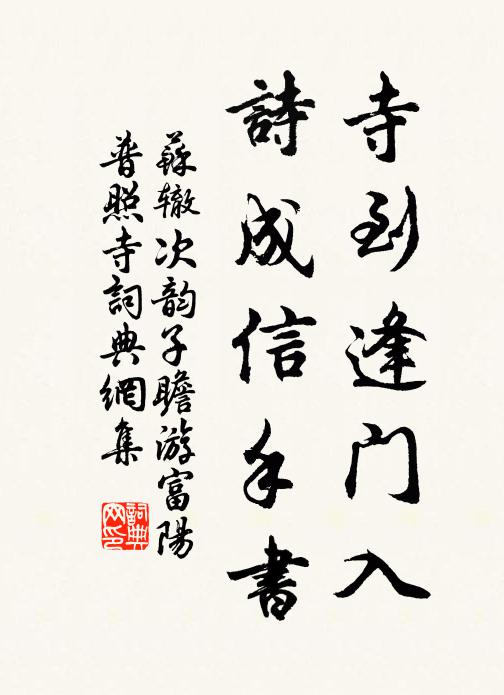 寺到逢門入
詩成信手書
蘇辙次韵子瞻游富陽
普照寺詞典網集
詞典网印